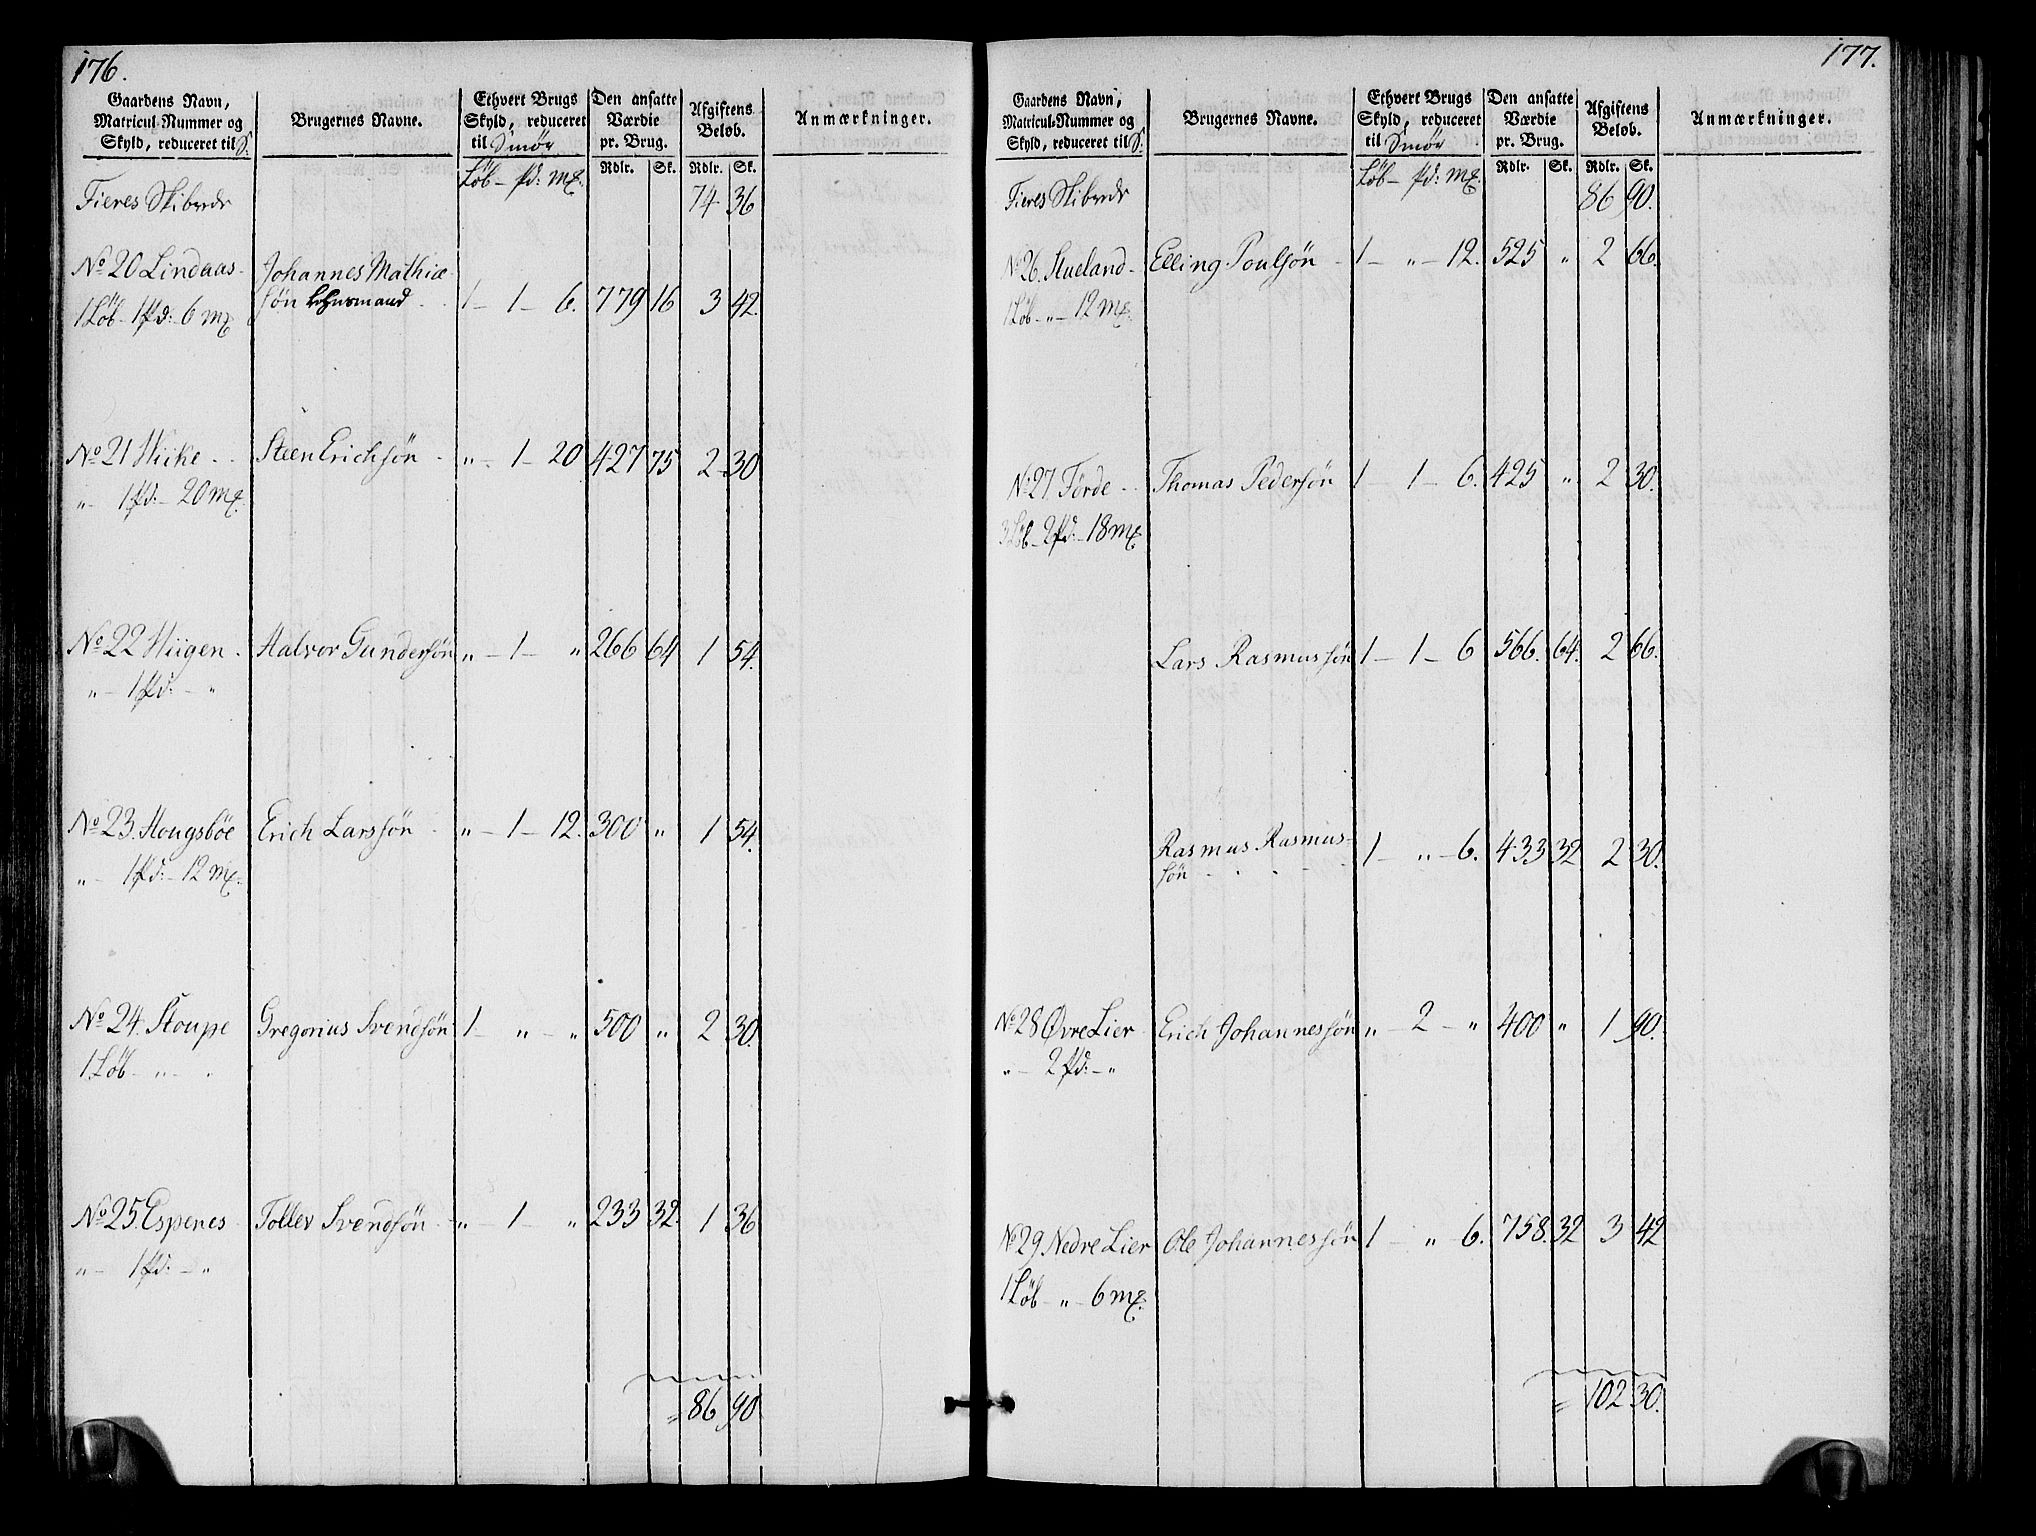 176.
Gaardens Navn, Matricul-Nummer og Skyld, reduceret til S. | Brugernes Navne. | Ethvert Brugs Skyld, reduceret til Smör | Den ansatte Værdie pr. Brug. | Afgiftens Beløb. | Anmærkninger.
Löb - pd: mk. | Rdlr. | Sk. | Rdlr. | Sk.
Fieres Skibrede 74 36
No 20 Lindaas - Johannes Mathiæ
1 Löb - 1 pd: - 6 mk sön Lehnsmand 1 - 1 - 6. 779 16 3 42.
No 21 Wiike - Steen Erichsön - " - 1 - 20 427 75 2 30
" - 1 pd: - 20 mk.
No 22 Wiigen. Halvor Gundersön " - 1 - " 266 64 1 54.
" - 1 pd: - "
No 23. Hougsböe Erich Larssön - " - 1 - 12. 300 " 1 54.
" - 1 pd: - 12 mk.
No 24. Stoupe Gregorius Svendsön 1 - " - " 500 " 2 30.
1 Löb - " - "
No 25. Espenes Tollev Svendsön - " - 1 - " 233 32. 1 36
" - 1 pd: - "
= 86 90
177.
Gaardens Navn, Matricul-Nummer og Skyld, reduceret til S. | Brugernes Navne. | Ethvert Brugs Skyld, reduceret til Smör | Den ansatte Værdie pr. Brug. | Afgiftens Beløb. | Anmærkninger.
Löb - pd: mk. | Rdlr. | Sk. | Rdlr. | Sk.
Fieres Skibrede 86 90.
No 26. Stueland - Elling Poulsön - 1 - " - 12. 525 " 2 66.
1 Löb - " - 12 mk.
No 27 Förde - Thomas Pedersön 1 - 1 - 6. 425 " 2 30.
3 Löb - 2 pd: - 18 mk
Lars Rasmussön 1 - 1 - 6 566. 64. 2 66.
Rasmus Rasmus-
sön - 1 - " - 6. 433 32 2 30.
No 28 Øvre Lier Erich Johannessön " - 2 - " 400 " 1 90.
" - 2 pd: - "
No 29 Nedre Lier Ole Johannessön 1 - " 6. 758. 32 3 42
1 Löb - " - 6 mk.
= 102 30.